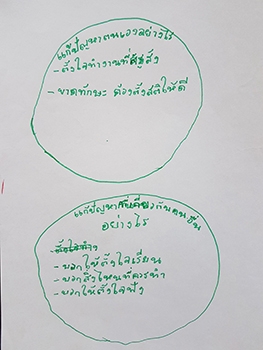 แก้ปัญหาตนเองอย่างไร
- ตั้งใจทำงานที่ครูสั่ง
- ขาดทักษะ ต้องตั้งสติให้ดี
แก้ปัญหาที่เกี่ยวกับคนอื่น
อย่างไร
- บอกให้ตั้งใจเรียน
- บอกสิ่งไหนที่ควรทำ
- บอกให้ตั้งใจฟัง